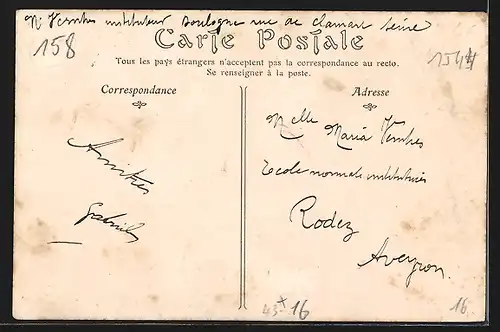 instituteur Boulogne rue de Clamart Seine
158
Carte Postale
1544
Tous les pays étrangers n'acceptent pas la correspondance au recto.
Se renseigner à la poste.
Correspondance
Amitiés
Adresse
Melle Maria
Ecole normale institutrices
Rodez
Aveyron.
45 x 16
16